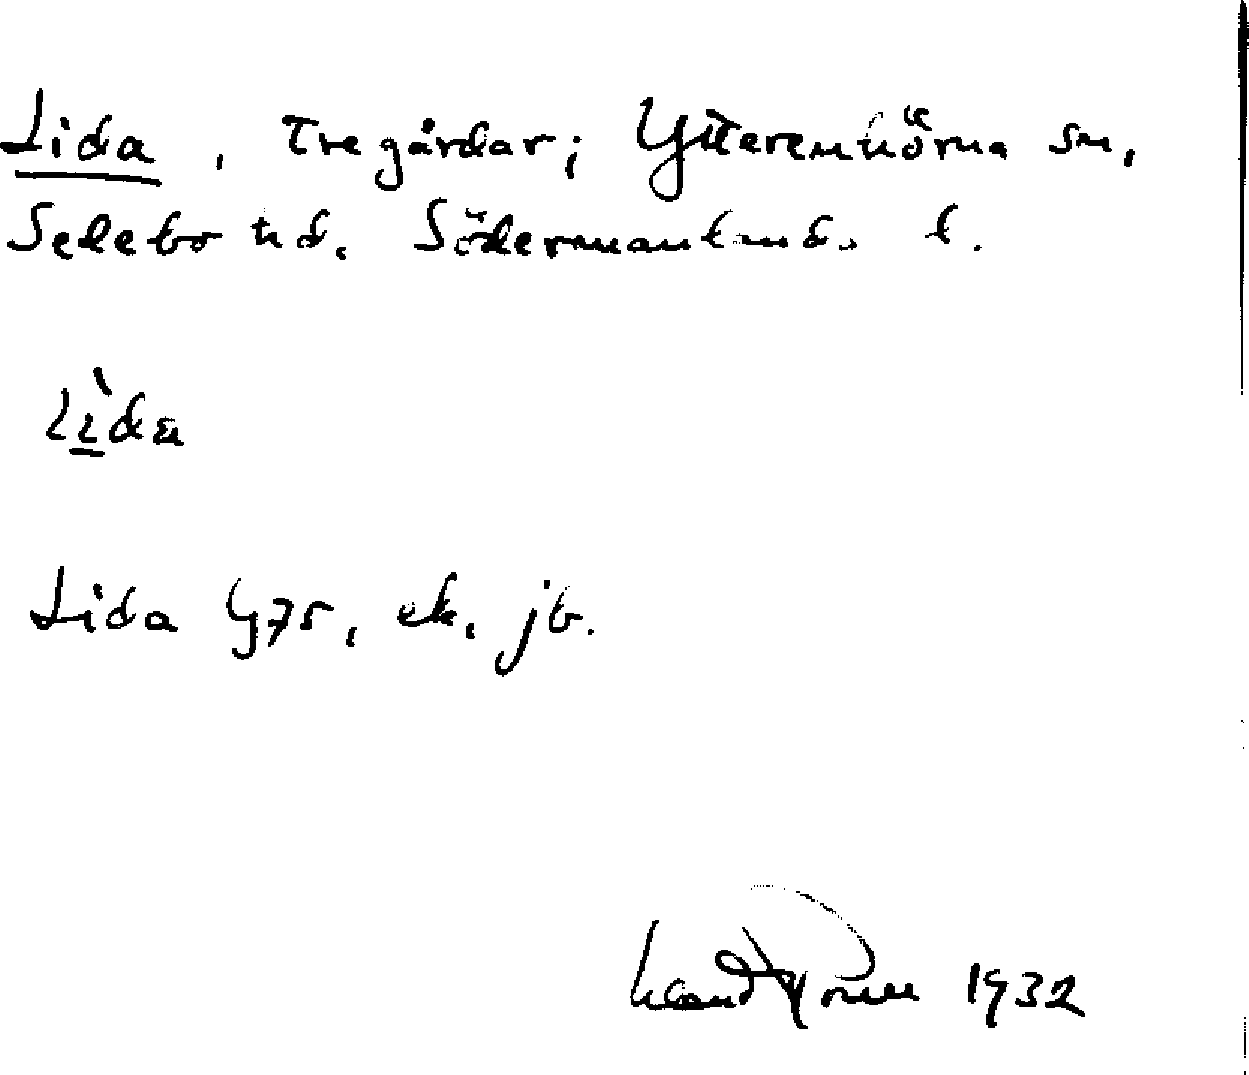 Lida, Tre gårdar; Ytterenhörna sn,
Selebo hd. Södermanland. l.
Lìda
Lida 475, ek. jb.
1932